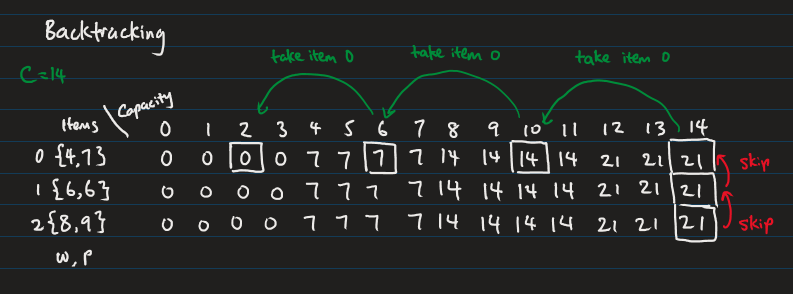 Backtracking
take item 0 take item 0 take item 0
C=14
Items \ Capacity 0 1 2 3 4 5 6 7 8 9 10 11 12 13 14
0 {4,7} 0 0 0 0 7 7 7 7 14 14 14 14 21 21 21 skip
1 {6,6} 0 0 0 0 7 7 7 7 14 14 14 14 21 21 21
2 {8,9} 0 0 0 0 7 7 7 7 14 14 14 14 21 21 21 skip
w, p